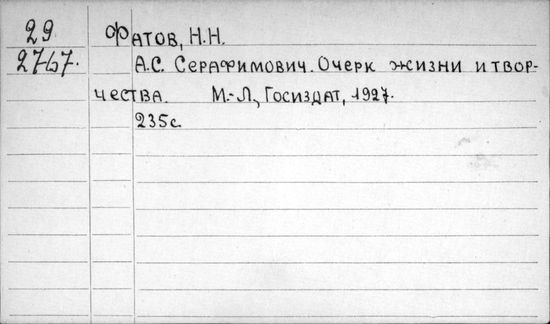 29 Фатов, Н.Н.
2767. А.С. Серафимович. Очерк жизни и твор-
чества. М.-Л., Госиздат, 1927.
235с.